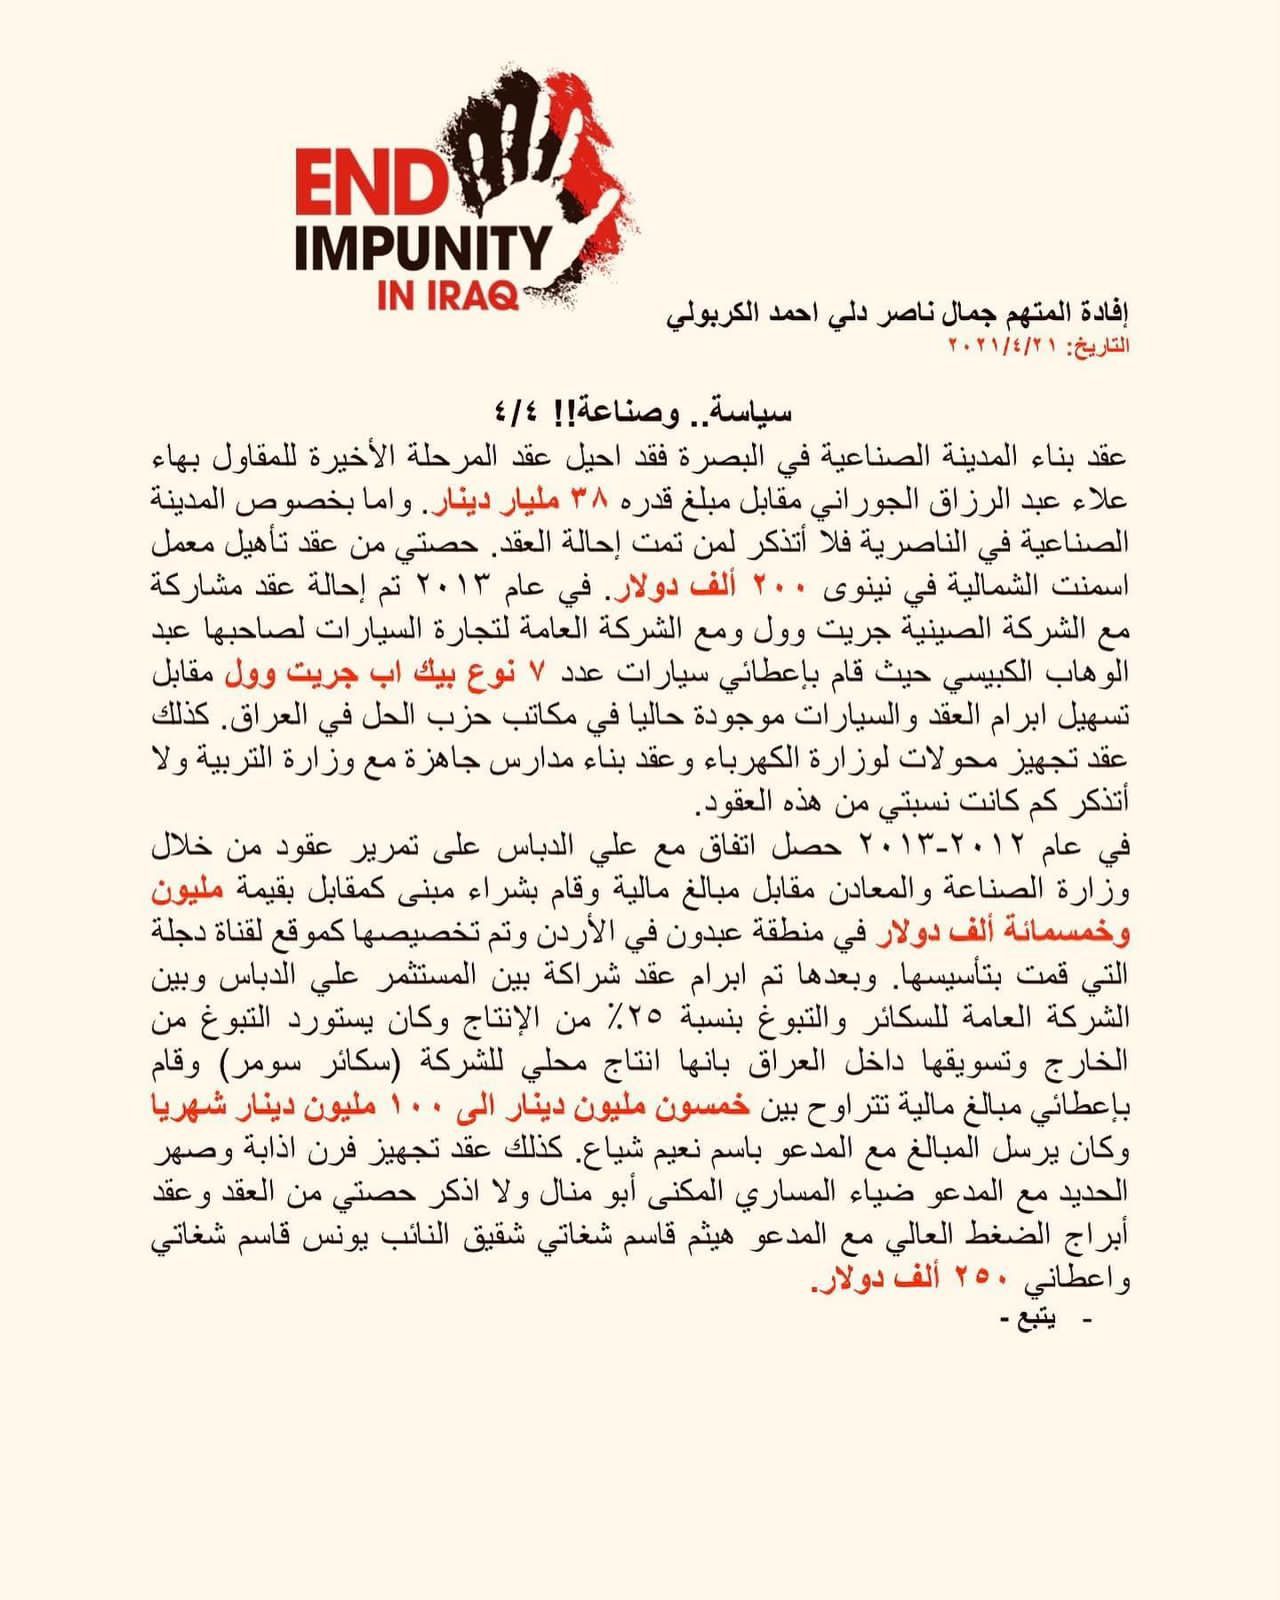 END
IMPUNITY
IN IRAQ
إفادة المتهم جمال ناصر دلي احمد الكربولي
التاريخ: ٢٠٢١/٤/٢١
سياسة.. وصناعة!! ٤/٤
عقد بناء المدينة الصناعية في البصرة فقد احيل عقد المرحلة الأخيرة للمقاول بهاء
علاء عبد الرزاق الجوراني مقابل مبلغ قدره ٣٨ مليار دينار. واما بخصوص المدينة
الصناعية في الناصرية فلا أتذكر لمن تمت إحالة العقد. حصتي من عقد تأهيل معمل
اسمنت الشمالية في نينوى ٢٠٠ ألف دولار. في عام ٢٠١٣ تم إحالة عقد مشاركة
مع الشركة الصينية جريت وول ومع الشركة العامة لتجارة السيارات لصاحبها عبد
الوهاب الكبيسي حيث قام بإعطائي سيارات عدد ٧ نوع بيك اب جريت وول مقابل
تسهيل ابرام العقد والسيارات موجودة حاليا في مكاتب حزب الحل في العراق. كذلك
عقد تجهيز محولات لوزارة الكهرباء وعقد بناء مدارس جاهزة مع وزارة التربية ولا
أتذكر كم كانت نسبتي من هذه العقود.
في عام ٢٠١٢-٢٠١٣ حصل اتفاق مع علي الدباس على تمرير عقود من خلال
وزارة الصناعة والمعادن مقابل مبالغ مالية وقام بشراء مبنى كمقابل بقيمة مليون
وخمسمائة ألف دولار في منطقة عبدون في الأردن وتم تخصيصها كموقع لقناة دجلة
التي قمت بتأسيسها. وبعدها تم ابرام عقد شراكة بين المستثمر علي الدباس وبين
الشركة العامة للسكائر والتبوغ بنسبة ٢٥٪ من الإنتاج وكان يستورد التبوغ من
الخارج وتسويقها داخل العراق بانها انتاج محلي للشركة (سكائر سومر) وقام
بإعطائي مبالغ مالية تتراوح بين خمسون مليون دينار الى ١٠٠ مليون دينار شهريا
وكان يرسل المبالغ مع المدعو باسم نعيم شياع. كذلك عقد تجهيز فرن اذابة وصهر
الحديد مع المدعو ضياء المساري المكنى أبو منال ولا اذكر حصتي من العقد وعقد
أبراج الضغط العالي مع المدعو هيثم قاسم شغاتي شقيق النائب يونس قاسم شغاتي
واعطاني ٢٥٠ ألف دولار.
- يتبع -